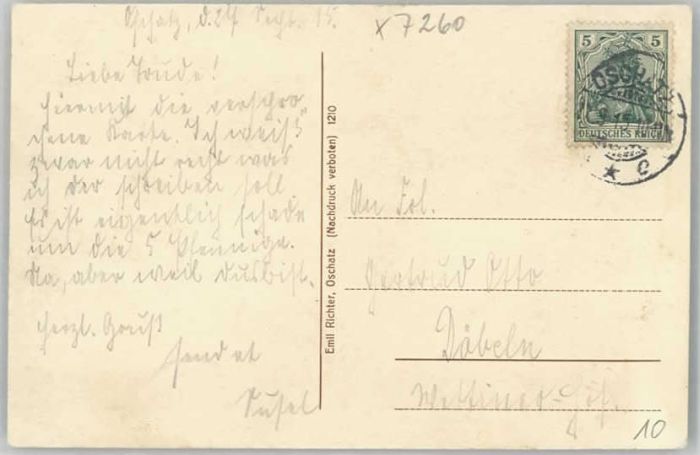 Oschatz, d. 24 Sept. 15.
Liebe Trude!
Hiermit die versproch-
chene Karte. Ich weiß
zwar nicht recht was
ich Dir schreiben soll
Es ist eigentlich schade
um die 5 Pfennige.
Na, aber weil du's bist.
Herzl. Gruß
sendet
Susel
x7260
5 5
DEUTSCHES REICH
OSCHATZ
Emil Richter, Oschatz (Nachdruck verboten) 1210
An Frl.
Gertrud Otto
Döbeln
Wettiner-
10